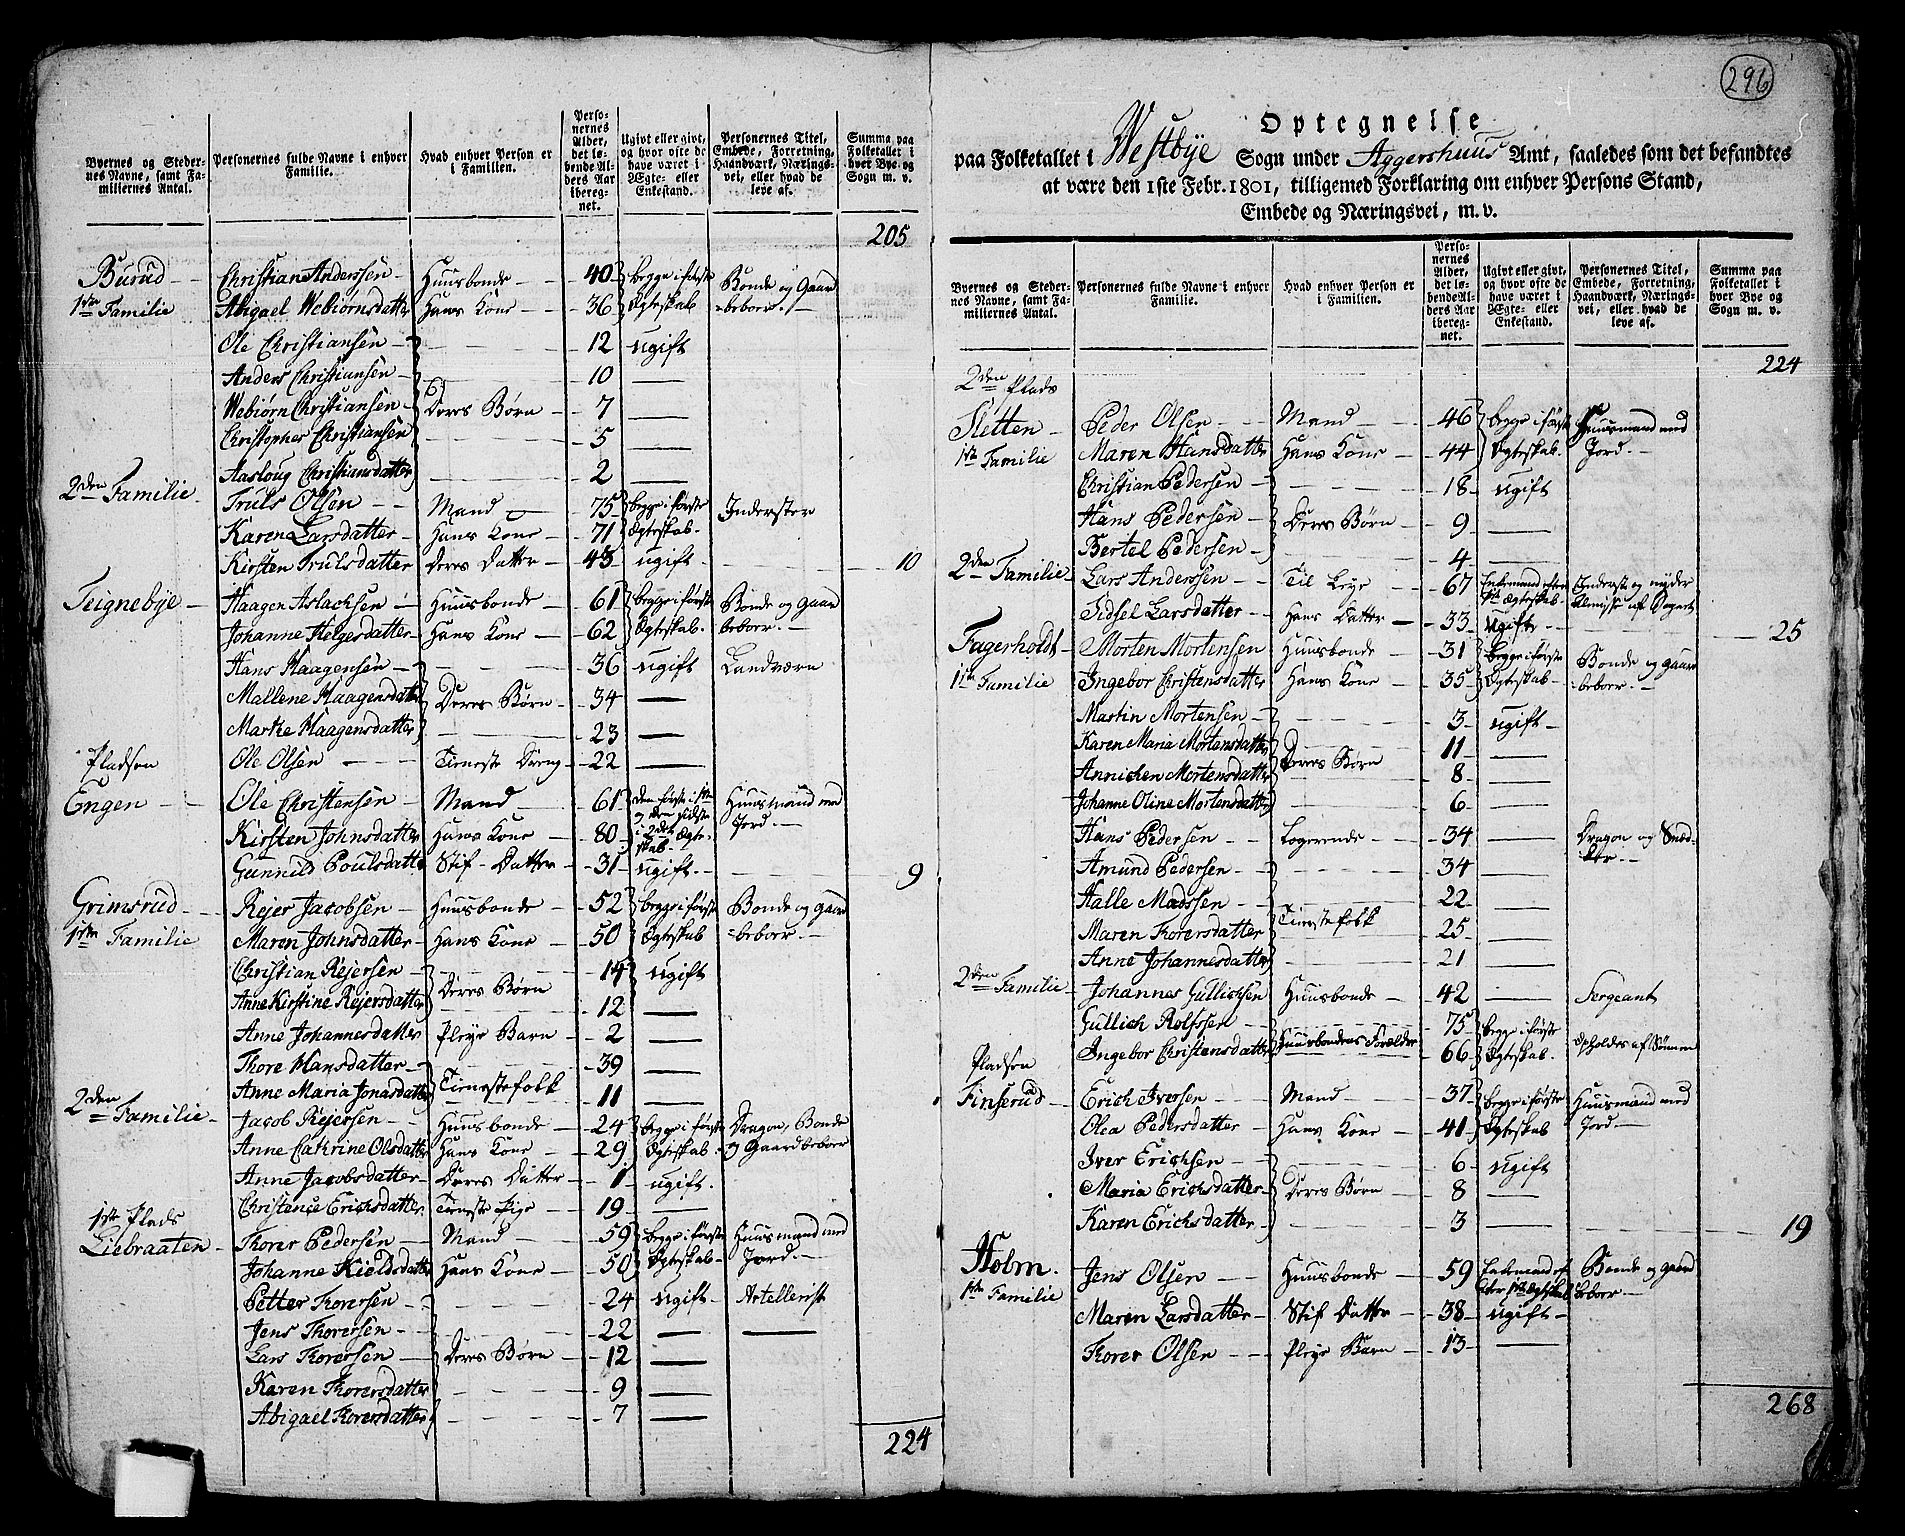 296
Byernes og Steder-
nes Navne, samt Fa-
miliernes Antal.
Personernes fulde Navne i enhver
Familie.
Hvad enhver Person er
i Familien.
Perso-
nernes
Alder,
det lø-
bende Al-
ders Aar
iberegn-
net.
Ugivt eller givt,
og hvor ofte de
have været i
Ægte- eller
Enkestand.
Personernes Titel,
Embede, Forretning,
Haandværk, Nærings-
vei, eller hvad de
leve af.
Summa paa
Folketallet i
hver Bye og
Sogn m. v.
205
Burud Christian Andersen Huusbonde 40 begge i første Bonde og Gaard
1ste Familie Abigael Webiørnsdatter Hans Kone 36 Ægteskab beboer.
Ole Christiansen 12 ugift
Anders Christiansen 10 —
Webiørn Christiansen Deres Børn 7 —
Christopher Christiansen 5 —
Aasloug Christiansdatter 2 —
2den Familie Truls Olsen Mand 75 begge i første Inderster
Karen Larsdatter Hans Kone 71 Ægteskab.
Kirsten Trulsdatter Deres Datter 43 ugift 10
Teignebye Haagen Aslachsen Huusbonde 61 begge i første Bonde og Gaard
Johanne Helgesdatter Hans Kone 62 Ægteskab. beboer.
Hans Haagensen 36 ugift Landværn
Mallene Haagensdatter Deres Børn 34 —
Marthe Haagensdatter 23 —
Pladsen Ole Olsen Tieneste Dreng 22 —
Engen Ole Christensen Mand 61 den første i 1ste Huusmand med
og den sidste Jord.
Kirsten Johnsdatter Hans Kone 80 i 2det Ægte-
skab
Gunnild Poulsdatter Stif-Datter 31 ugift. 9
Grimsrud Rejer Jacobsen Huusbonde 52 begge i første Bonde og Gaard
1ste Familie Maren Johnsdatter Hans Kone 50 Ægteskab beboer.
Christian Rejersen 14 ugift
Deres Børn
Anne Kirstine Rejersdatter 12 —
Anne Johannesdatter Pleye Barn 2 —
Thore Hansdatter 39 —
Tienestefolk
Anne Maria Jonasdatter 11 —
2den Familie Jacob Rejersen Huusbonde 24 begge i første Dragon, Bonde
Anne Cathrine Olsdatter Hans Kone 29 Ægteskab. og Gaardbeboer
Anne Jacobsdatter Deres Datter 1 ugift.
Christence Erichsdatter Tieneste Pige 19 —
1ste Plads
Liebraaten Thorer Pedersen Mand 59 begge i første Huusmand med
Johanne Kieldsdatter Hans Kone 50 Ægteskab Jord.
Petter Thorersen 24 ugift Artellerist
Jens Thorersen 22 — —
Lars Thorersen Deres Børn 12 —
Karen Thorersdatter 9 —
Abigael Thorersdatter 7 —
224
Optegnelse
paa Folketallet i Westbye Sogn under Aggershuus Amt, saaledes som det befandtes
at være den 1ste Febr. 1801, tilligemed Forklaring om enhver Persons Stand,
Embede og Næringsvei, m. v.
Byernes og Steder-
nes Navne, samt Fa-
miliernes Antal.
Personernes fulde Navne i enhver
Familie.
Hvad enhver Person er
i Familien.
Perso-
nernes
Alder,
det lø-
bende Al-
ders Aar
iberegn-
net.
Ugivt eller givt,
og hvor ofte de
have været i
Ægte- eller
Enkestand.
Personernes Titel,
Embede, Forretning,
Haandværk, Nærings-
vei, eller hvad de
leve af.
Summa paa
Folketallet i
hver Bye og
Sogn m. v.
224
2den Plads
Sletten Peder Olsen Mand 46 begge i første Huusmand med
1ste Familie Maren Hansdatter Hans Kone 44 Ægteskab. Jord.
Christian Pedersen 18 ugift
Hans Pedersen Deres Børn 9 —
Bertel Pedersen 4 —
2den Familie Lars Anderssen Til Leye 67 Enkemand efter Inderst og nyder
1ste Ægteskab Almisse af Sognet
Sidsel Larsdatter Hans Datter 33 ugift 25
Fagerholdt Morten Mortensen Huusbonde 31 begge i første Bonde og Gaard
1ste Familie Ingebor Christensdatter Hans Kone 35 Ægteskab beboer.
Martin Mortensen 3 ugift
Karen Maria Mortensdatter 11 —
Deres Børn
Annichen Mortensdatter 8 —
Johanne Oline Mortensdatter 6 —
Hans Pedersen Logerende 34 — Dragon og Sned-
ker
Amund Pedersen 34 —
Halle Madssen 22 —
Tienestefolk
Maren Thorersdatter 25 —
Anne Johannesdatter 21 —
2den Familie Johannes Gullichsen Huusbonde 42 — Sergeant
Gullich Rolfssen 75 begge i første
Huusbondens Forælder Opholdes af Sønnen
Ingebor Christensdatter 66 Ægteskab.
Pladsen
Finserud Erich Iversen Mand 37 begge i første Huusmand med
Olea Pedersdatter Hans Kone 41 Ægteskab Jord.
Iver Erichsen 6 ugift
Maria Erichsdatter Deres Børn 8 —
Karen Erichsdatter 3 — 19
Holm. Jens Olsen Huusbonde 59 Enkemand ef- Bonde og Gaard
1ste Familie ter 1ste Ægteskab beboer
Maren Larsdatter Stif Datter 38 ugift
Thorer Olsen Pleye Barn 13 —
268